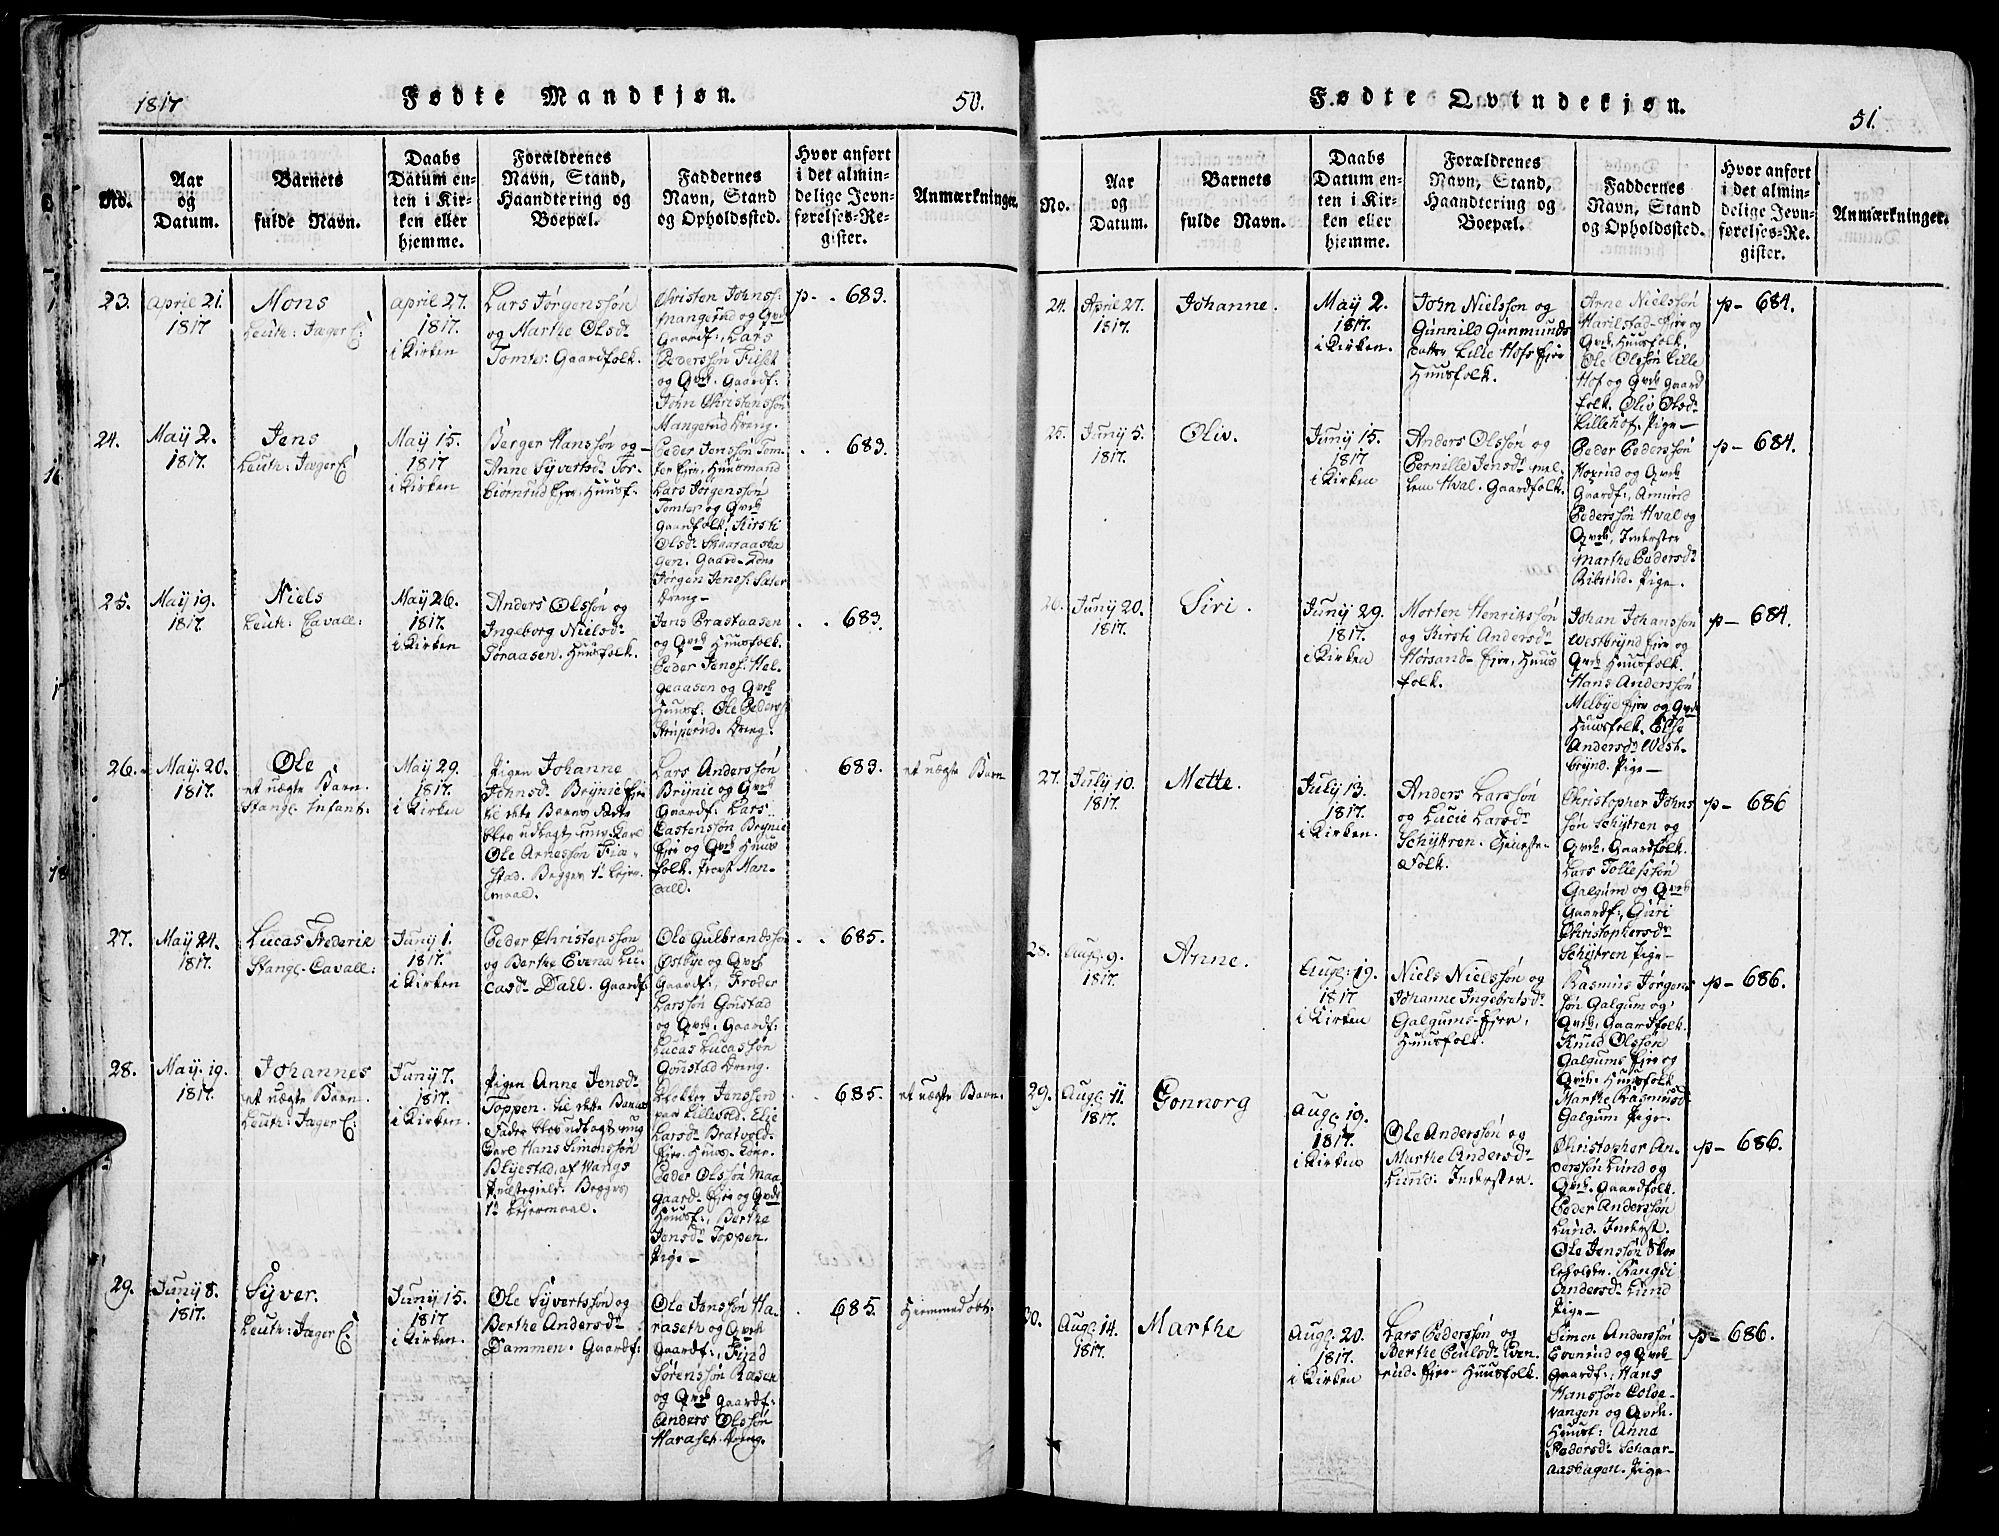 1817
Fødte Mandkjøn.
50.
No.
Aar
og
Datum.
Barnets
fulde Navn.
Daabs
Datum en-
ten i Kir-
ken eller
hjemme.
Forældrenes
Navn, Stand,
Haandtering og
Boepæl.
Faddernes
Navn, Stand
og Opholdssted.
Hvor anført
i det almin-
delige Jevn-
førelses-Re-
gister.
Anmærkninger.
23.
April 21.
1817
Mons
Leuth: Jæger C:
April 27.
1817.
i Kirken
Lars Jørgenssøn
og Marthe Olsdr
Tomter. Gaardfolk.
Christen Johnss:
Mangerud og Qvde
Gaardf:, Lars
Pederssøn Filset
og Qvde. Gaardf:
John Christenssøn
Mangerud Dreng.
p. 683.
24.
May 2.
1817.
Jens
Leuth: Jæger C:
May 15.
1817
i Kirken
Berger Hanssøn og
Anne Syvertsdr Tor-
biørnrud Eje. Huusf.
Peder Jenssøn Tom-
ter Eje, Huusmand
Lars Jørgenssøn
Tomter og Qvde
Gaardfolk, Kirsti
Olsdr Skaraasha
gen. Gaard-Kone
Jørgen Jenss: Sæter
Dreng-
683.
25.
May 19.
1817.
Niels
Leuth: Cavall:
May 26.
1817.
i Kirken
Anders Olssøn og
Ingeborg Nielsdr
Toraasen. Huusfolk.
Jens Prastaasen
og Qvde Huusfolk.
Peder Jenss: Hel-
geaasen og Qvde
Huusf: Ole Pederss:
Dreng.
683.
26.
May. 20.
1817.
Ole
et uægte Barn.
Stange Infant:
May 29.
1817.
i Kirken
Pigen Johanne
Johnsdr Brynie Eje
til dette Barns Fader
blev udlagt ung Karl
Ole Arnessøn Fiæ-
stad. Begges 1te Lejer
maal.
Lars Anderssøn
Brynie og Qvde
Gaardf: Lars
Castenssøn Brynie
Eje og Qvde Huus
folk.
683.
et uægte Barn
27.
May 24.
1817.
Lucas Frederik
Stange Cavall:
Juny 1.
1817.
i Kirken
Peder Christenssøn
og Berthe Evena Lu-
casdr Dall. Gaardf.
Ole Gulbrandssøn
Østbye og Qvde
Gaardf:, Frøder
Larssøn Gonstad
og Qvde: Gaardf:
Lucas Lucassøn
Gonstad Dreng.
685.
28.
May. 19.
1817.
Johannes
et uægte Barn.
Leuth: Jæger C:
Juny 7.
1817.
i Kirken.
Pigen Anne Jensdr
Toppen. til dette Barns
Fader blev udlagt ung
Carl Hans Simonssøn
Blyestad, af Vangs
Præstegield. Begges
1te Lejermaal.
Klokker Jenssen
paa Lillevold. Elie
Larsdr Bratvold-
Eje. Huus-Kone.
Peder Olssøn Maa
gaard Eje og Qvde
Huusf:, Berthe
Jensdr Toppen.
Pige-
685.
et uægte Barn.
29.
Juny 8.
1817.
Syver.
Leuth: Jæger C:
Juny 15.
1817
i Kirken.
Ole Syvertssøn og
Berthe Andersdr
Dammen. Gaardf:
Ole Jenssøn Ha-
raseth og Qvde
Gaardf:, Find
Sørenssøn Raseh
og Qvde Gaardf:
Anders Olssøn
Haraseh Dreng.
685.
Hiemmed øbt:
Fødte Qvindekjøn.
51.
No.
Aar
og
Datum.
Barnets
fulde Navn.
Daabs
Datum en-
ten i Kir-
ken eller
hjemme.
Forældrenes
Navn, Stand,
Haandtering og
Boepæl.
Faddernes
Navn, Stand
og Opholdssted.
Hvor anført
i det almin-
delige Jevn-
førelses-Re-
gister.
Anmærkninger.
24.
April 27.
1817.
Johanne.
May 2.
1817.
i Kirken.
John Nielssøn og
Gunnild Gunmunds
datter Lille Hofs Eje
Huusfolk.
Arne Nielssøn
Harilstad-Eje og
Qvde, Huusfolk.
Ole Olssøn Lille
Hof og Qvde Gaard
folk. Oliv Olsdr
Lillehof. Pige-
p- 684.
25.
Juny 5.
1817.
Oliv.
Juny 15.
1817.
i Kirken
Anders Olssøn og
Pernille Jensdr mel-
lem Hval. Gaardfolk.
Peder Pederssøn
Hoxrud og Qvde
Gaardf:, Amund
Pederssøn Hval og
Qvde, Inderster
Marthe Pedersdr
Pige.
p- 684.
26.
Juny 20.
1817.
Siri.
Juny 29.
1817.
i Kirken
Morten Henrikssøn
og Kirsti Andersdr
Horsand-Eje, Huus
folk.
Johan Johanssøn
Westbrynd Eje og
Qvde Huusfolk.
Hans Anderssøn
Melbye Eje og Qvde
Huusfolk. Else
Andersdr West-
brynd. Pige-
p- 684.
27.
July 10.
1817.
Mette.
July 13.
1817.
i Kirken.
Anders Larssøn
og Lucie Larsdr
Schyttren. Tieneste-
Folk.
Christopher Johns
søn Schytren og
Qvde. Gaardfolk.
Lars Tollefssøn
Galgum og Qvde
Gaardf:, Guri
Christophersdr
Schytren Pige-
p- 686
28.
Aug. 9.
1817.
Anne.
Aug: 19.
1817
i Kirken
Niels Nielssøn og
Johanne Ingebretsdr
Galgums-Ejer,
Huusfolk.
Rasmus Jørgens
søn Galgum og
Qvde, Gaardfolk.
Knud Olssøn
Galgums Eje og
Qvde: Huusfolk
Marthe Rasmusdr
Galgum Pige-
p- 686.
29.
Aug. 11.
1817.
Gonnorg
Aug. 19.
1817.
i Kirken
Ole Anderssøn og
Marthe Andersdr
Lund: Inderster.
Christopher An-
derssøn Lund og
Qvde. Gaardfolk.
Peder Anderssøn
Lund. Inderst.
Ole Jenssøn Skoe
leholder. Rangdi
Andersdr Lund
Pige-
p- 686.
30.
Aug. 14.
1817.
Marthe
Aug. 20.
1817.
i Kirken
Lars Pederssøn og
Berthe Poulsdr Even
rud. Eje. Huusfolk.
Simen Anderssøn
Evenrud og Qvde
Gaardf:, Hans
Hanssøn Colse-
vangen og Qvde.
Huusf: Anne
Pedersdr Schaar-
aashagen. Pige-
p- 686.